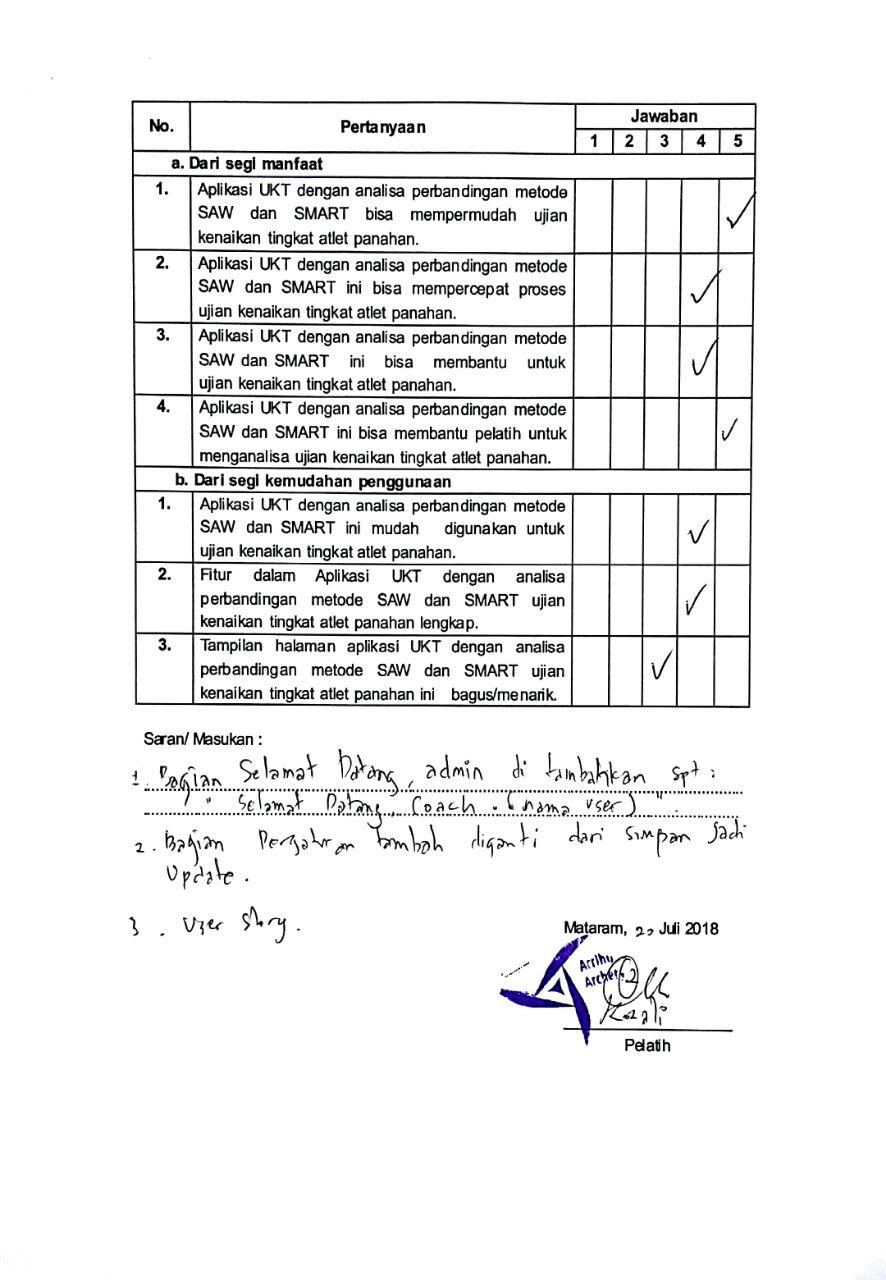 No. Pertanyaan Jawaban
1 2 3 4 5
a. Dari segi manfaat
1. Aplikasi UKT dengan analisa perbandingan metode
SAW dan SMART bisa mempermudah ujian
kenaikan tingkat atlet panahan.
2. Aplikasi UKT dengan analisa perbandingan metode
SAW dan SMART ini bisa mempercepat proses
ujian kenaikan tingkat atlet panahan.
3. Aplikasi UKT dengan analisa perbandingan metode
SAW dan SMART ini bisa membantu untuk
ujian kenaikan tingkat atlet panahan.
4. Aplikasi UKT dengan analisa perbandingan metode
SAW dan SMART ini bisa membantu pelatih untuk
menganalisa ujian kenaikan tingkat atlet panahan.
b. Dari segi kemudahan penggunaan
1. Aplikasi UKT dengan analisa perbandingan metode
SAW dan SMART ini mudah digunakan untuk
ujian kenaikan tingkat atlet panahan.
2. Fitur dalam Aplikasi UKT dengan analisa
perbandingan metode SAW dan SMART ujian
kenaikan tingkat atlet panahan lengkap.
3. Tampilan halaman aplikasi UKT dengan analisa
perbandingan metode SAW dan SMART ujian
kenaikan tingkat atlet panahan ini bagus/menarik.
Saran/ Masukan :
1. Bagian Selamat Datang, admin di tambahkan spt :
" Selamat Datang, Coach . (nama user) "
2. Bagian Pengaturan tambah diganti dari simpan jadi
Update .
3 . User Story .
Mataram, Juli 2018
Pelatih